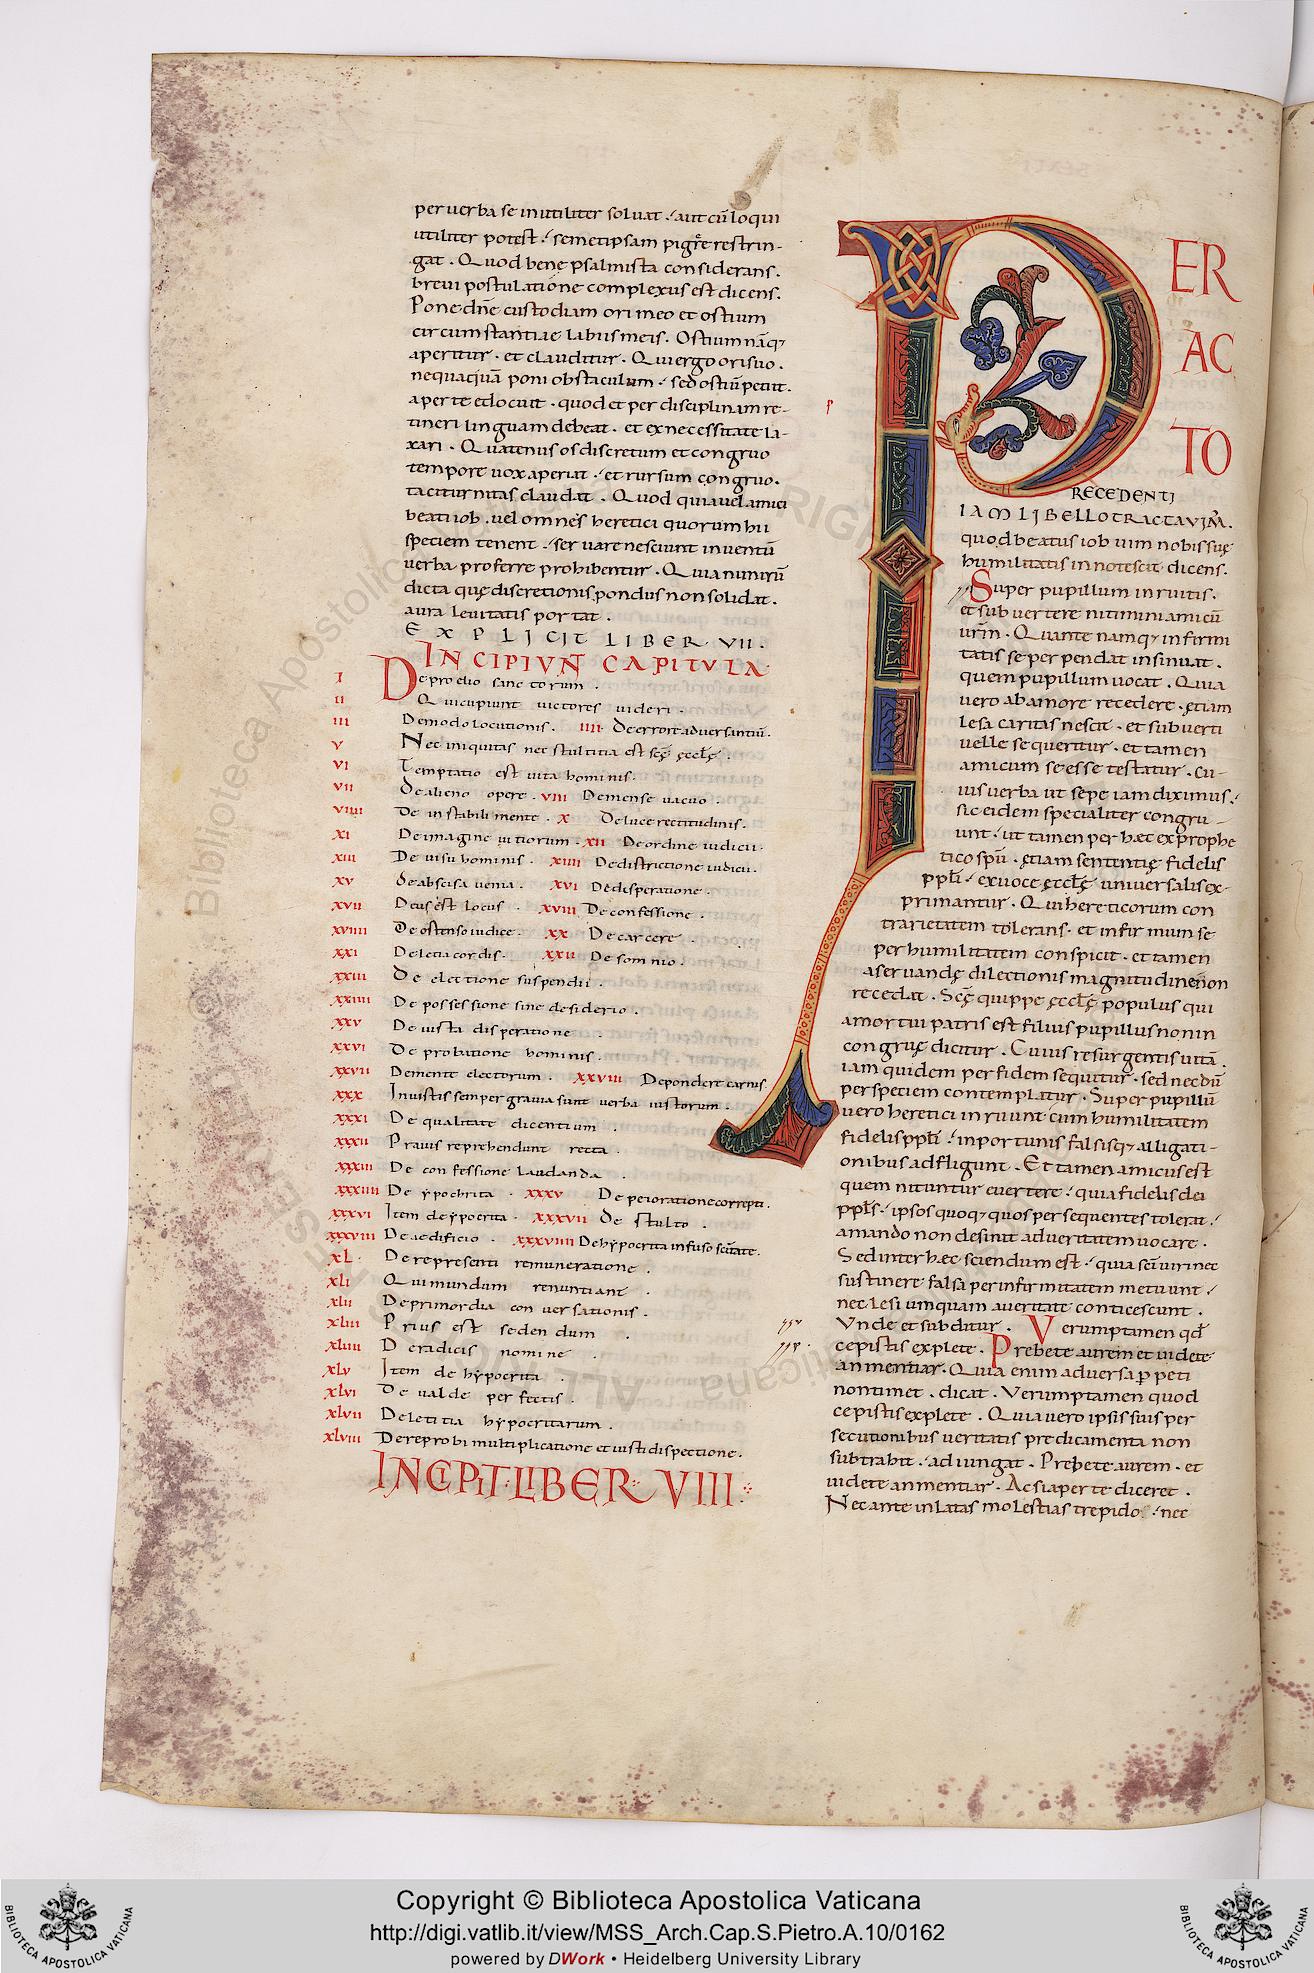 per verba se inutiliter soluat . aut cū loqui
utiliter potest . semetipsam pigrẽ restrin-
gat . Quod bene psalmista considerans .
breui postulatione complexus est dicens .
Pone dn̄e custodiam ori meo et ostium
circumstantiae labiis meis . Ostium nāq;
aperitur . et clauditur . Qui ergo ori suo .
nequaquā poni obstaculum . sed ostiū petiit .
aperte edocuit . quod et per disciplinam re-
tineri linguam debeat . et ex necessitate la-
xari . Quatenus os discretum et congruo
tempore uox aperiat . et rursum congruo .
taciturnitas claudat . Quod quia uel amici
beati iob . uel omnes heretici quorum hii
speciem tenent . seruare nesciunt in uentū
uerba proferre prohibentur . Quia nimirū
dicta quę discretionis pondus non solidat .
aura leuitatis portat .
EXPLICIT LIBER VII .
INCIPIVNT CAPITVLA
I De proelio sanctorum .
II Qui cupiunt uictores uideri .
III De modo locutionis . IIII De errore aduersantiū .
V Nec iniquitas nec stultitia est scę ęccl̄ę .
VI Temptatio est uita hominis .
VII De alieno opere . VIII De mense uacuo .
VIIII De instabili mente . X De luce rectitudinis .
XI De imagine uitiorum . XII De ordine iudicii .
XIII De uisu hominis . XIIII De districtione iudicii .
XV De abscisa uenia . XVI De disperatione .
XVII Deus est locus . XVIII De confessione .
XVIIII De ostenso iudice . XX De carcere .
XXI De letia cordis . XXII De somnio .
XXIII De electione suspendii .
XXIIII De possessione sine desiderio .
XXV De iusta disperatione
XXVI De probatione hominis .
XXVII De mente electorum . XXVIII De pondere carnis .
XXX Iniustis semper grauia sunt uerba iustorum .
XXXI De qualitate dicentium .
XXXII Prauis reprehendunt recta .
XXXIII De confessione laudanda .
XXXIIII De ypochrita . XXXV De peioratione correpti .
XXXVI Item de ypocrita . XXXVII De stulto .
XXXVIII De aedificio . XXXVIIII De hypocrita infuso scūtate .
XL De representi remuneratione .
XLI Qui mundum renuntiant .
XLII De primordia conuersationis .
XLIII Prius est sedendum .
XLIIII De radicis nomine .
XLV Item de hypocrita .
XLVI De ualde perfectis .
XLVII De letitia hypocritarum .
XLVIII De reprobi multiplicatione et iusti dispectione .
INCIPIT LIBER VIII
P
ER
AC
TO
RECEDENTI
IAM LIBELLO TRACTAVIM̄ .
quod beatus iob uim nobis suę
humilitatis innotescit dicens .
Super pupillum inruitis .
et subuertere nitimini amicū
ur̄m . Quante namq; infirmi
tatis se perpendat insinuat .
quem pupillum uocat . Quia
uero ab amore recedere . ętiam
lesa caritas nescit . et subuerti
uelle se queritur . et tamen
amicum se esse testatur . Cu-
ius uerba ut sepe iam diximus .
sic eidem specialiter congru-
unt . ut tamen per haec ex prophe
tico spū . ętiam sententię fidelis
ppl̄i . ex uoce ęccl̄ę uniuersalis ex-
primantur . Qui hereticorum con
trarietatem tolerans . et infirmum se
per humilitatem conspicit . et tamen
a seruandę dilectionis magnitudine non
recedat . Scę quippe ęccl̄ę populus qui
amortui patris est filius pupillus non in
congruę dicitur . Cuius resurgentis uitā
iam quidem per fidem sequitur . sed necdū
per speciem contemplatur . Super pupillū
uero heretici inruunt cum humilitatem
fidelis ppl̄i . inportunis falsisq; alligati-
onibus adfligunt . Et tamen amicus est
quem nituntur euertere . quia fidelis dei
ppl̄s . ipsos quoq; quos persequentes tolerat .
amando non desinit ad ueritatem uocare .
Sed inter haec sciendum est . quia sc̄i uiri nec
sustinere falsa per infirmitatem metuunt .
nec lesi umquam a ueritate conticescunt .
Vnde et subditur . Verumptamen qđ
cepistis explete . Prebete aurem et uidete
an mentiar . Quia enim aduersa perpeti
non timet . dicat . Verumptamen quod
cepistis explete . Quia uero ipsis suis per
secutionibus ueritatis predicamenta non
subtrahit . adiungat . Prebete aurem . et
uidete an mentiar . Ac si aperte diceret .
Nec ante inlatas molestias trepido . nec
Copyright © Biblioteca Apostolica Vaticana
http://digi.vatlib.it/view/MSS_Arch.Cap.S.Pietro.A.10/0162
powered by DWork • Heidelberg University Library
BIBLIOTECA APOSTOLICA VATICANA
BIBLIOTECA APOSTOLICA VATICANA